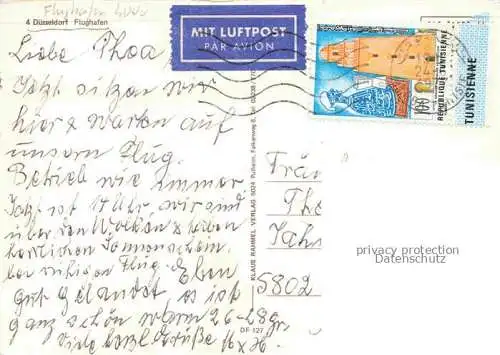 Flughafen
4 Düsseldorf Flughafen
MIT LUFTPOST
PAR AVION
REPUBLIQUE TUNISIENNE
TUNISIENNE
Liebe Thea
Jetzt sitzen wir
hier & warten auf
unsern Flug.
Betrieb wie immer.
Jetzt ist 17 Uhr wir sind
über den Wolken & haben
herrlichen Sonnenschein.
ruhigen Flug. Eben
Gut Gelandet es ist
ganz schön warm 26-28 gr.
Viele herzl Grüße
KLAUS RAHMEL VERLAG 5024 Pulheim
DF 127
Frä
The
Jah
5802
privacy protection
Datenschutz